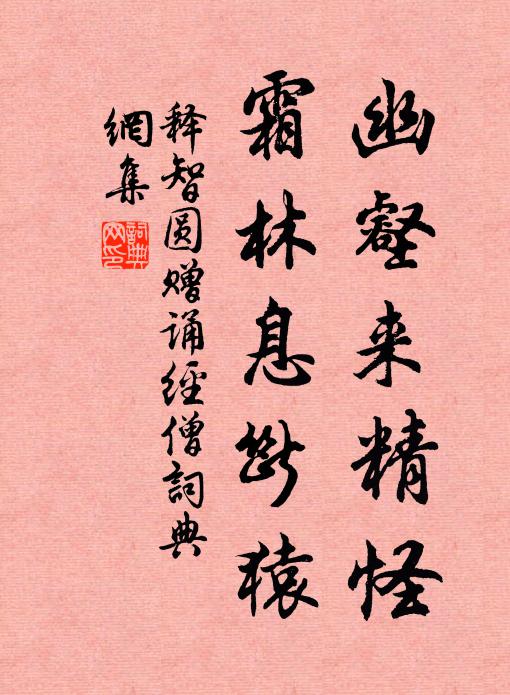 幽壑来精怪
霜林息断猿
释智圆赠诵经僧词典
网集
詞典网印